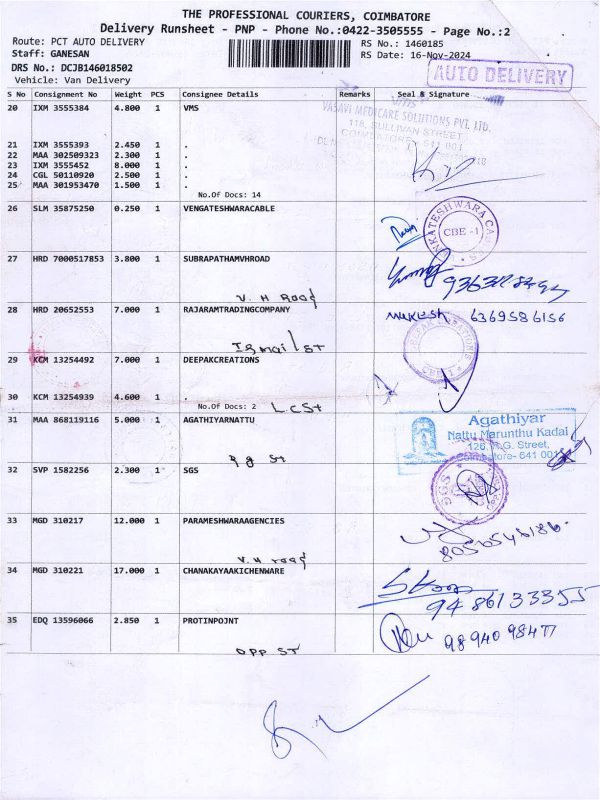 THE PROFESSIONAL COURIERS, COIMBATORE
Delivery Runsheet - PNP - Phone No.:0422-3505555 - Page No.:2
Route: PCT AUTO DELIVERY
RS No.: 1460185
Staff: GANESAN
RS Date: 16-Nov-2024
DRS No.: DCJB146018502
AUTO DELIVERY
Vehicle: Van Delivery
S No Consignment No Weight PCS Consignee Details Remarks Seal & Signature
20 IXM 3555384 4.800 1 VMS
VASAVI MEDICARE SOLUTIONS PVT. LTD.
118, SULLIVAN STREET
COIMBATORE - 641 001
21 IXM 3555393 2.450 1 .
22 MAA 302509323 2.300 1 .
23 IXM 3555452 8.000 1 .
24 CGL 50110920 2.500 1 .
25 MAA 301953470 1.500 1 .
No.Of Docs: 14
26 SLM 35875250 0.250 1 VENGATESHWARACABLE
CBE -1
27 HRD 7000517853 3.800 1 SUBRAPATHAMVHROAD
V. H Road
28 HRD 20652553 7.000 1 RAJARAMTRADINGCOMPANY
Mukesh 6369586156
Ismail St
29 KCM 13254492 7.000 1 DEEPAKCREATIONS
30 KCM 13254939 4.600 1 .
No.Of Docs: 2 L.C St
31 MAA 868119116 5.000 1 AGATHIYARNATTU
Agathiyar
Nattu Marunthu Kadai
126, R.G. Street,
Coimbatore- 641 001
R G St
32 SVP 1582256 2.300 1 SGS
SGS
33 MGD 310217 12.000 1 PARAMESHWARAAGENCIES
V.H road
34 MGD 310221 17.000 1 CHANAKAYAAKICHENWARE
94 86133355
35 EDQ 13596066 2.850 1 PROTINPOJNT
98940 98477
OPP ST